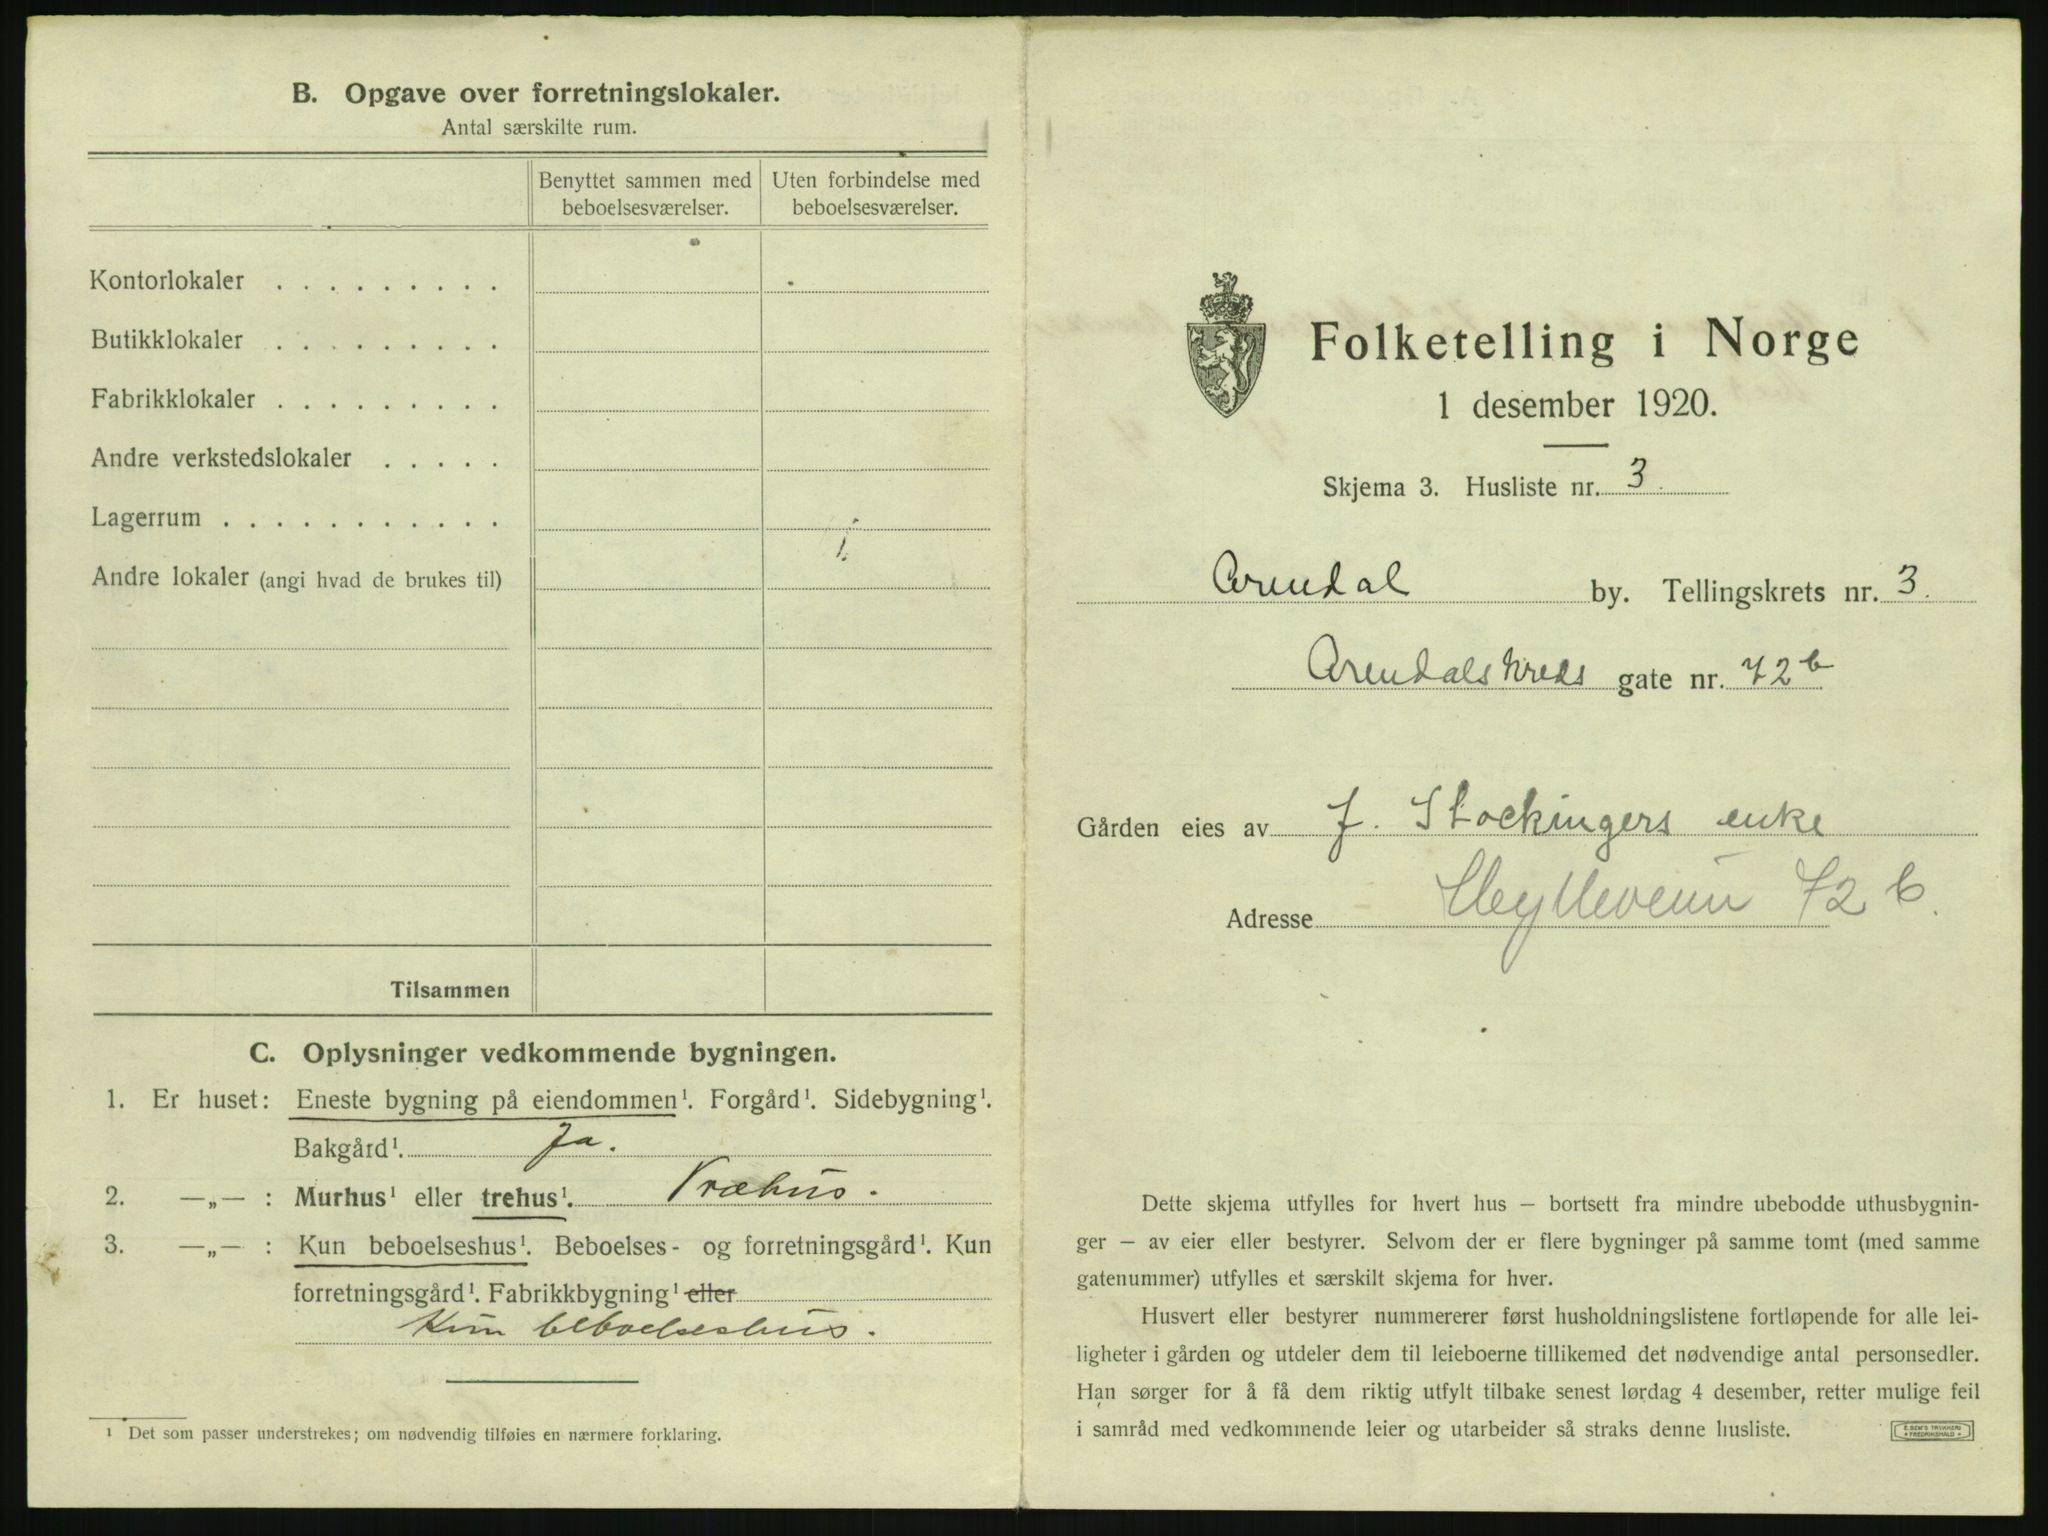 B. Opgave over forretningslokaler.
Antal særskilte rum.
Benyttet sammen med beboelsesværelser.
Uten forbindelse med beboelsesværelser.
Kontorlokaler . . . . . . . . .
Butikklokaler . . . . . . . . .
Fabrikklokaler . . . . . . . . .
Andre verkstedslokaler . . . . .
Lagerrum . . . . . . . . . . .
Andre lokaler (angi hvad de brukes til)
Tilsammen
C. Oplysninger vedkommende bygningen.
1. Er huset: Eneste bygning på eiendommen¹. Forgård¹. Sidebygning¹.
Bakgård¹. Ja.
2. —„— : Murhus¹ eller trehus¹. Træhus.
3. —„— : Kun beboelseshus¹. Beboelses- og forretningsgård¹. Kun
forretningsgård¹. Fabrikkbygning¹ eller
Kun beboelseshus.
¹ Det som passer understrekes; om nødvendig tilføies en nærmere forklaring.
Folketelling i Norge
1 desember 1920.
Skjema 3. Husliste nr. 3
Arendal by. Tellingskrets nr. 3.
Arendalskreds gate nr. 72b
Gården eies av J. Stockingers enke
Adresse 72 b.
Dette skjema utfylles for hvert hus – bortsett fra mindre ubebodde uthusbygnin-
ger – av eier eller bestyrer. Selvom der er flere bygninger på samme tomt (med samme
gatenummer) utfylles et særskilt skjema for hver.
Husvert eller bestyrer nummererer først husholdningslistene fortløpende for alle lei-
ligheter i gården og utdeler dem til leieboerne tillikemed det nødvendige antal personsedler.
Han sørger for å få dem riktig utfylt tilbake senest lørdag 4 desember, retter mulige feil
i samråd med vedkommende leier og utarbeider så straks denne husliste.